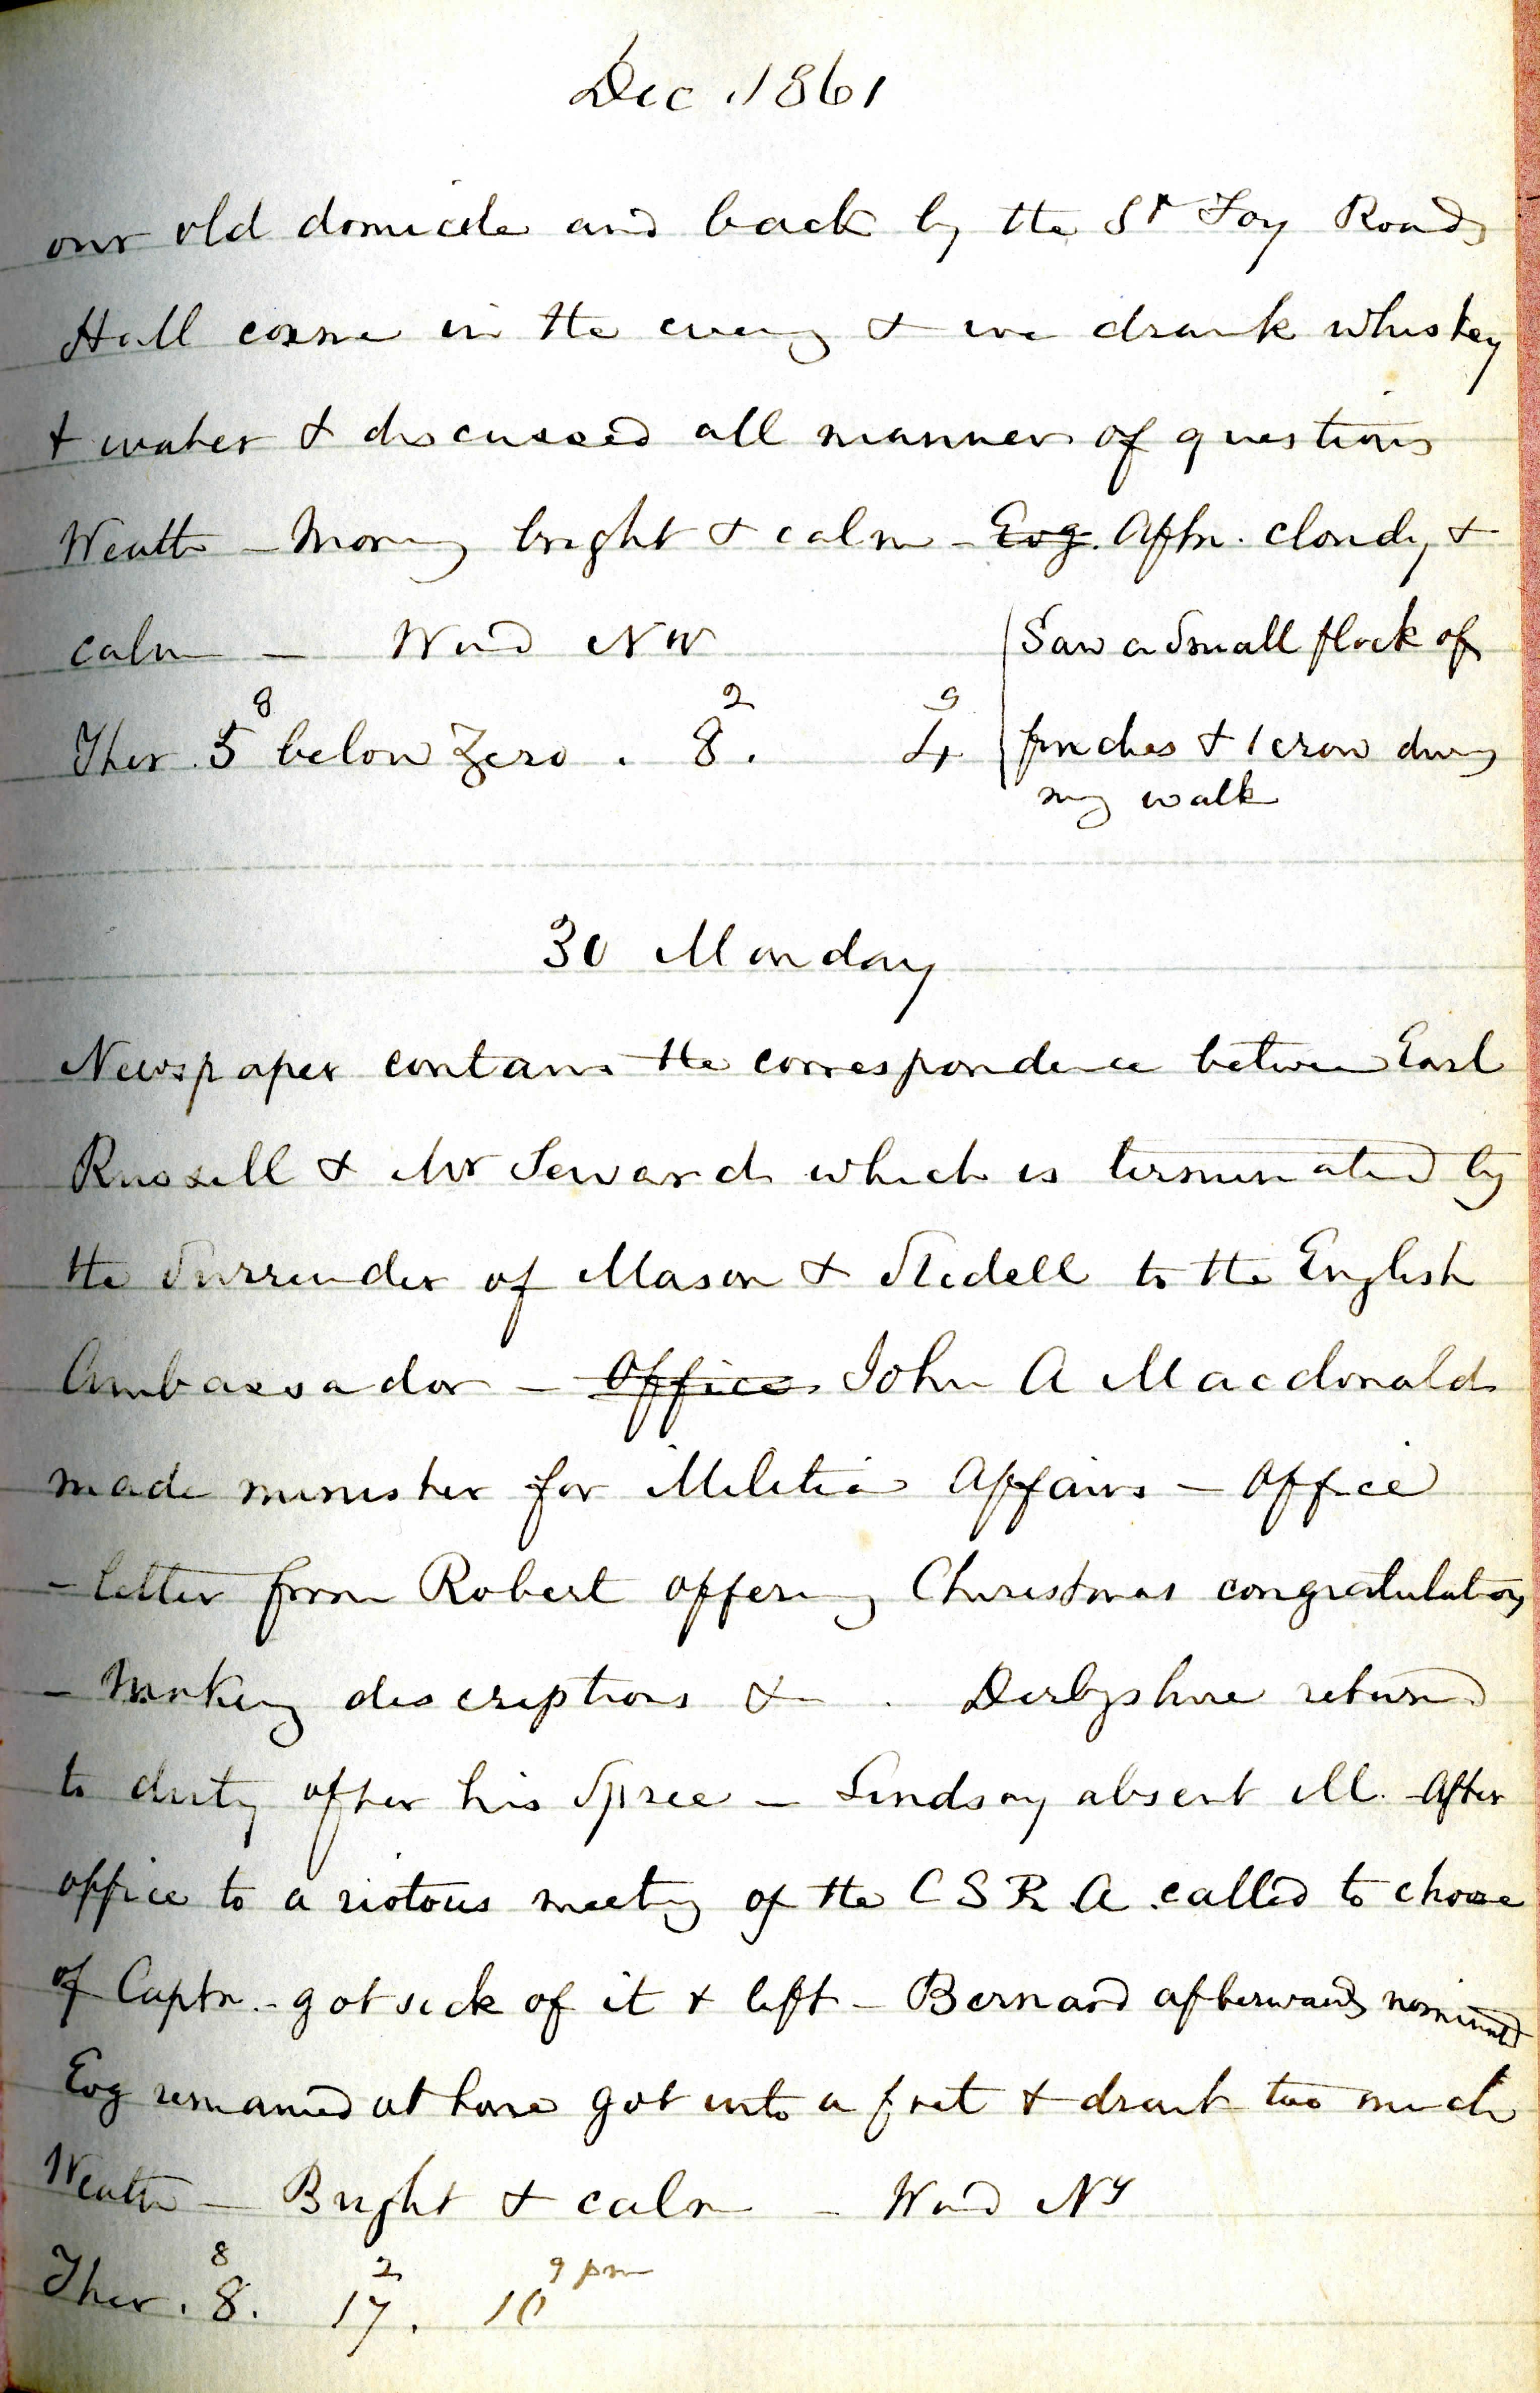 Dec. 1861
our old domicile and back by the St Foy Road,
Hall came in the eveng & we drank whiskey
& water & discussed all manner of questions
Weathr – Morng bright & calm – Evg. Aftn. cloudy &
calm – Wind NW
Saw a small flock of
8 2 9
Ther. 5 below Zero . 8 . 4
finches & 1 crow durg
my walk
30 Monday
Newspaper contains the correspondence between Earl
Russell & Mr Seward which is terminated by
the surrender of Mason & Slidell to the English
Ambassador – Office John A Macdonald
made minister for Militia Affairs – Office
– letter from Robert offerng Christmas congratulations
– Making descriptions &c . Derbyshire returned
to duty after his spree – Lindsay absent ill. After
office to a riotous meetg of the C S R A called to choose
of Captn. – got sick of it & left – Bernard afterwards nominated
Evg remained at home got into a fret & drank too much
Weathr – Bright & calm – Wind Ny
8 2 9 pm
Ther. 8. 17. 10